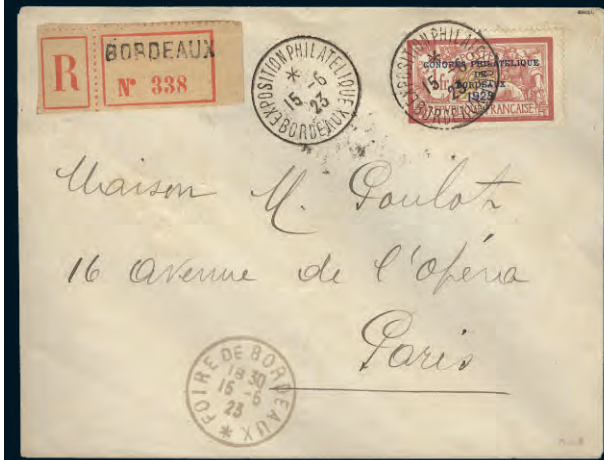 R
BORDEAUX
N° 338
EXPOSITION PHILATELIQUE
*
15 -6
23
BORDEAUX
EXPOSITION PHILATELIQUE
15 -6
23
BORDEAUX
CONGRÈS PHILATÉLIQUE
DE
BORDEAUX
1923
1 fr
REPUBLIQUE FRANÇAISE
Maison M. Poulot
16 avenue de l'Opéra
Paris
FOIRE DE BORDEAUX
18 30
15 -6
23
*